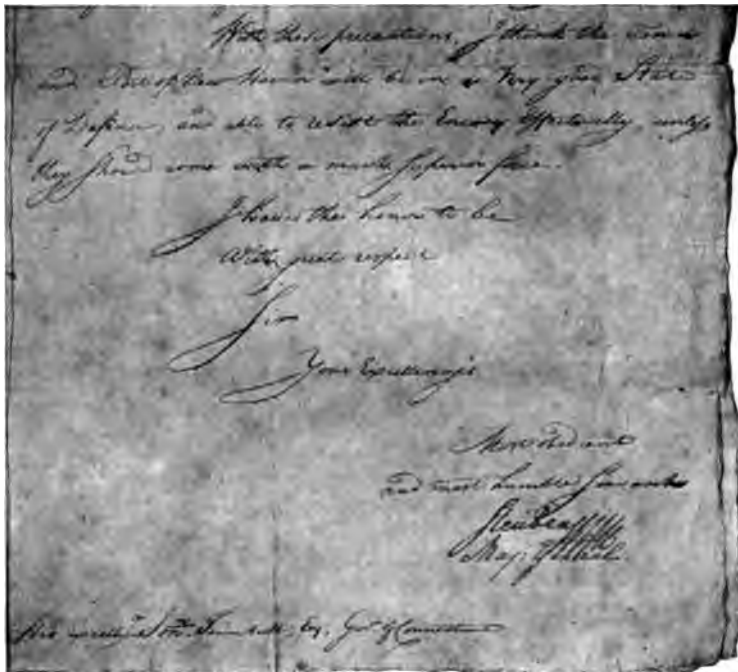 With these precautions, I think the Town
and Port of New Haven will be in a Very good State
of Defence, and able to resist the Enemy Effectually, unless
they shou'd come with a much Superior force.
I have the honor to be
With great respect
Sir
Your Excellency's
Most obedient
and most humble Servant
Steuben
Maj: General
His Excell:y Jon:n Trumbull, Esq, Gov:r of Connecticut